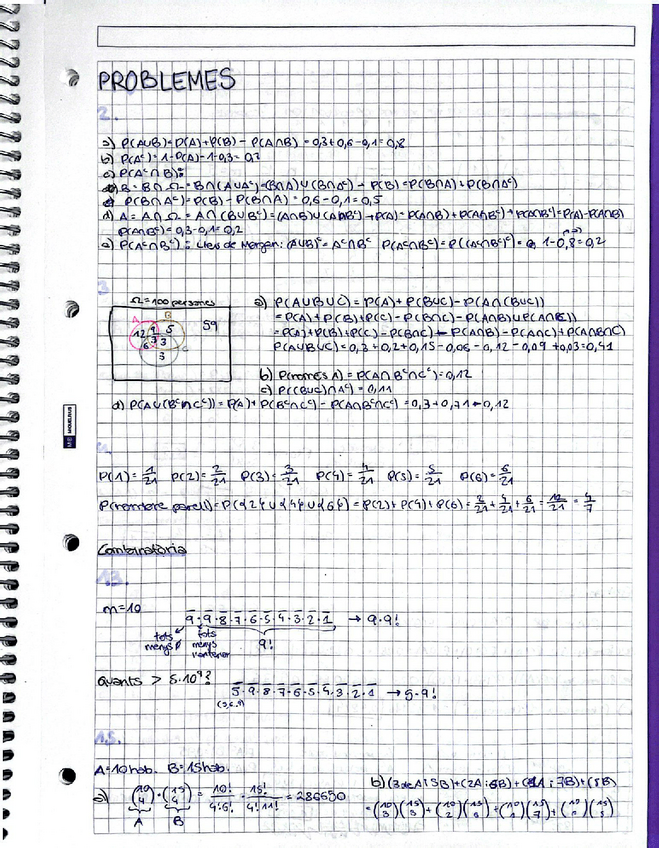 PROBLEMES
2.
a) P(A∪B)=P(A)+P(B)-P(A∩B)=0,3+0,6-0,1=0,8
b) P(Aᶜ)=1-P(A)=1-0,3=0,7
c) P(Aᶜ∩B):
B=B∩Ω=B∩(A∪Aᶜ)=(B∩A)∪(B∩Aᶜ)→P(B)=P(B∩A)+P(B∩Aᶜ)
P(B∩Aᶜ)=P(B)-P(B∩A)=0,6-0,1=0,5
d) A=A∩Ω=A∩(B∪Bᶜ)=(A∩B)∪(A∩Bᶜ)→P(A)=P(A∩B)+P(A∩Bᶜ)→P(A∩Bᶜ)=P(A)-P(A∩B)
P(A∩Bᶜ)=0,3-0,1=0,2
e) P(Aᶜ∩Bᶜ): Lleis de Morgan: (A∪B)ᶜ=Aᶜ∩Bᶜ P(Aᶜ∩Bᶜ)=P((A∪B)ᶜ)= 1-0,8=0,2
3
Ω=100 persones
A B
12 9 5 59
6 3 3
C
3
a) P(A∪B∪C)=P(A)+P(B∪C)-P(A∩(B∪C))
=P(A)+P(B)+P(C)-P(B∩C)-P((A∩B)∪(A∩C))
=P(A)+P(B)+P(C)-P(B∩C)-P(A∩B)-P(A∩C)+P(A∩B∩C)
P(A∪B∪C)=0,3+0,2+0,15-0,06-0,12-0,09+0,03=0,41
b) P(només A)=P(A∩Bᶜ∩Cᶜ)=0,12
c) P((B∪C)∩Aᶜ)=0,11
d) P(A∪(Bᶜ∩Cᶜ))=P(A)+P(Bᶜ∩Cᶜ)-P(A∩Bᶜ∩Cᶜ)=0,3+0,71-0,12
4.
P(1)=1/21 P(2)=2/21 P(3)=3/21 P(4)=4/21 P(5)=5/21 P(6)=6/21
P(nombre parell)=P({2}∪{4}∪{6})=P(2)+P(4)+P(6)=2/21+4/21+6/21=12/21=4/7
Combinatòria
13.
n=10
9·9·8·7·6·5·4·3·2·1 → 9·9!
tots menys 0 tots menys l'anterior 9!
Quants > 5·10⁹?
5·9·8·7·6·5·4·3·2·1 → 5·9!
15.
A=10hab. B=15hab.
a) (10 4)·(15 4)=10!/4!6!·15!/4!11!=286650
A B
b) (3 de A i 5B)+(2A i 6B)+(1A i 7B)+(8B)
=(10 3)(15 5)+(10 2)(15 6)+(10 1)(15 7)+(10 0)(15 8)
MIQUELRIUS